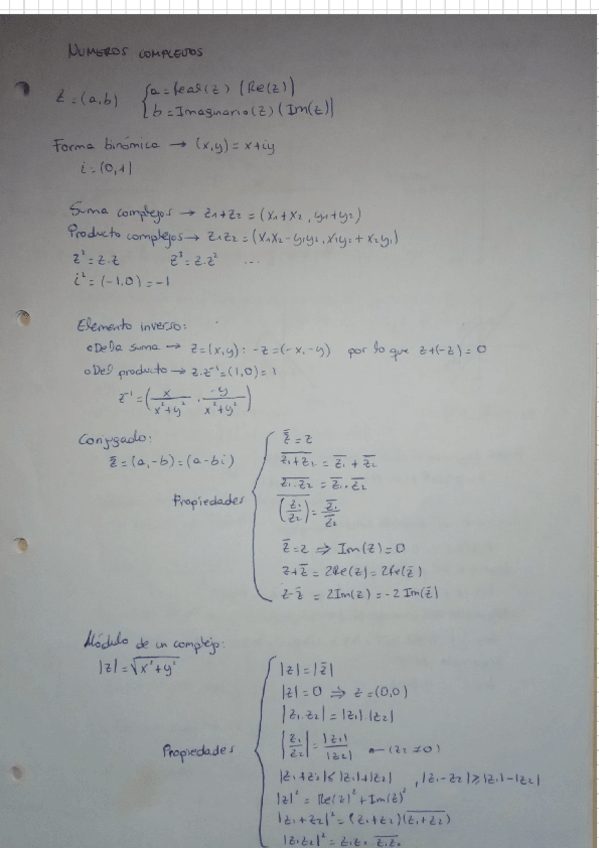 NUMEROS COMPLEJOS
z = (a,b) { a = Real(z) (Re(z))
b = Imaginario(z) (Im(z))
Forma binómica → (x,y) = x+iy
i = (0,1)
Suma complejos → z1+z2 = (x1+x2, y1+y2)
Producto complejos → z1z2 = (x1x2-y1y2, x1y2 + x2y1)
z² = z.z z³ = z.z² ...
i² = (-1,0) = -1
Elemento inverso:
o De la suma → z=(x,y): -z=(-x,-y) por lo que z+(-z) = 0
o Del producto → z.z⁻¹=(1,0)=1
z⁻¹ = (x/(x²+y²), -y/(x²+y²))
Conjugado:
z̄ = (a,-b) = (a-bi)
Propiedades
z̄ = z
\overline{z1+z2} = \overline{z1} + \overline{z2}
\overline{z1.z2} = \overline{z1}.\overline{z2}
\overline{(z1/z2)} = \overline{z1}/\overline{z2}
z̄ = z ⇒ Im(z) = 0
z+z̄ = 2Re(z) = 2Re(z̄)
z-z̄ = 2Im(z) = -2Im(z̄)
Módulo de un complejo:
|z| = √(x²+y²)
Propiedades
|z| = |z̄|
|z| = 0 ⇒ z = (0,0)
|z1.z2| = |z1| |z2|
|z1/z2| = |z1|/|z2| ← (z2 ≠ 0)
|z1+z2| ≤ |z1|+|z2| , |z1-z2| ≥ |z1|-|z2|
|z|² = Re(z)² + Im(z)²
|z1+z2|² = (z1+z2)(\overline{z1+z2})
|z1z2|² = z1z2 \overline{z1z2}